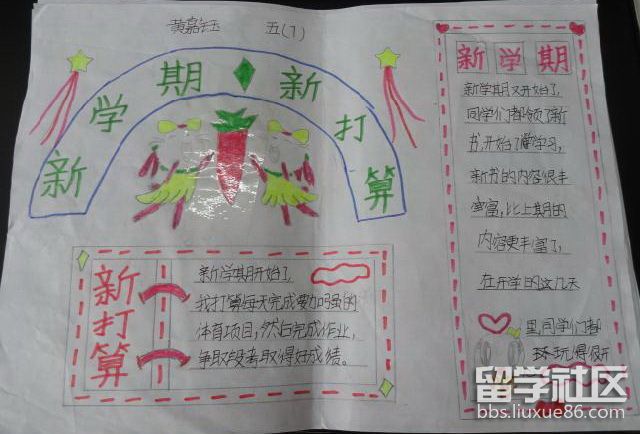 黄嘉钰 五(1)
新学期新打算
新打算
新学期开始了
我打算每天完成要加强的
体育项目，然后完成作业，
争取段考取得好成绩。
新学期
新学期又开始了，
同学们都领了新
书，开始了学习，
新书的内容很丰
富，比上期的
内容更丰富了，
在开学的这几天
里，同学们都
玩得很开
留学社区
bbs.liuxue86.com